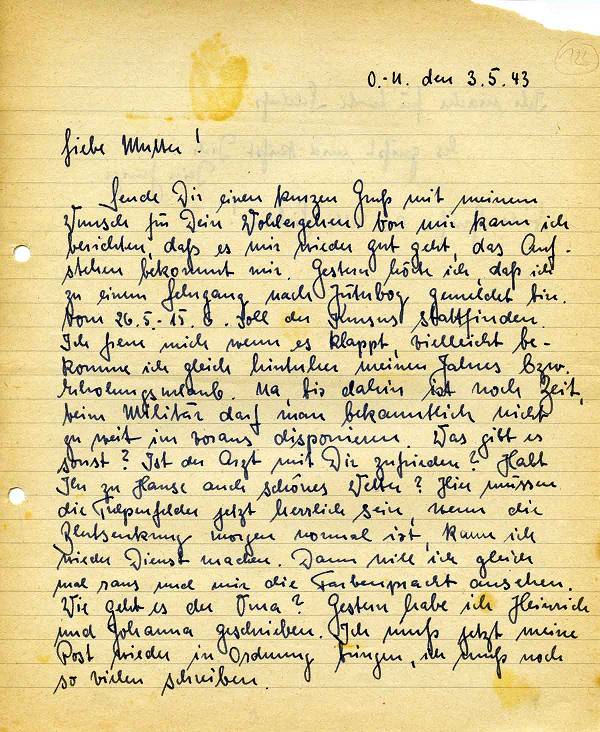 122
O.-U. den 3.5.43
Liebe Mutter!
Sende Dir einen kurzen Gruß mit meinem
Wunsch für Dein Wohlergehen. Von mir kann ich
berichten, daß es mir wieder gut geht, das Auf-
stehen bekommt mir. Gestern hörte ich, daß ich
zu einem Lehrgang nach Jüterbog gemeldet bin.
Vom 26.5.-15.6. soll der Kursus stattfinden.
Ich freue mich wenn es klappt, vielleicht be-
komme ich gleich hinterher meinen Jahres bzw.
Erholungsurlaub. Na, bis dahin ist noch Zeit,
beim Militär darf man bekanntlich nicht
zu weit im voraus disponieren. Was gibt es
sonst? Ist der Arzt mit Dir zufrieden? Habt
Ihr zu Hause auch schönes Wetter? Hier müssen
die Tulpenfelder jetzt herrlich sein, wenn die
Blutsenkung morgen normal ist, kann ich
wieder Dienst machen. Dann will ich gleich
mal raus und mir die Farbenpracht ansehen.
Wie geht es der Oma? Gestern habe ich Heinrich
und Johanna geschrieben. Ich muß jetzt meine
Post wieder in Ordnung bringen, ich muß noch
so vielen schreiben.